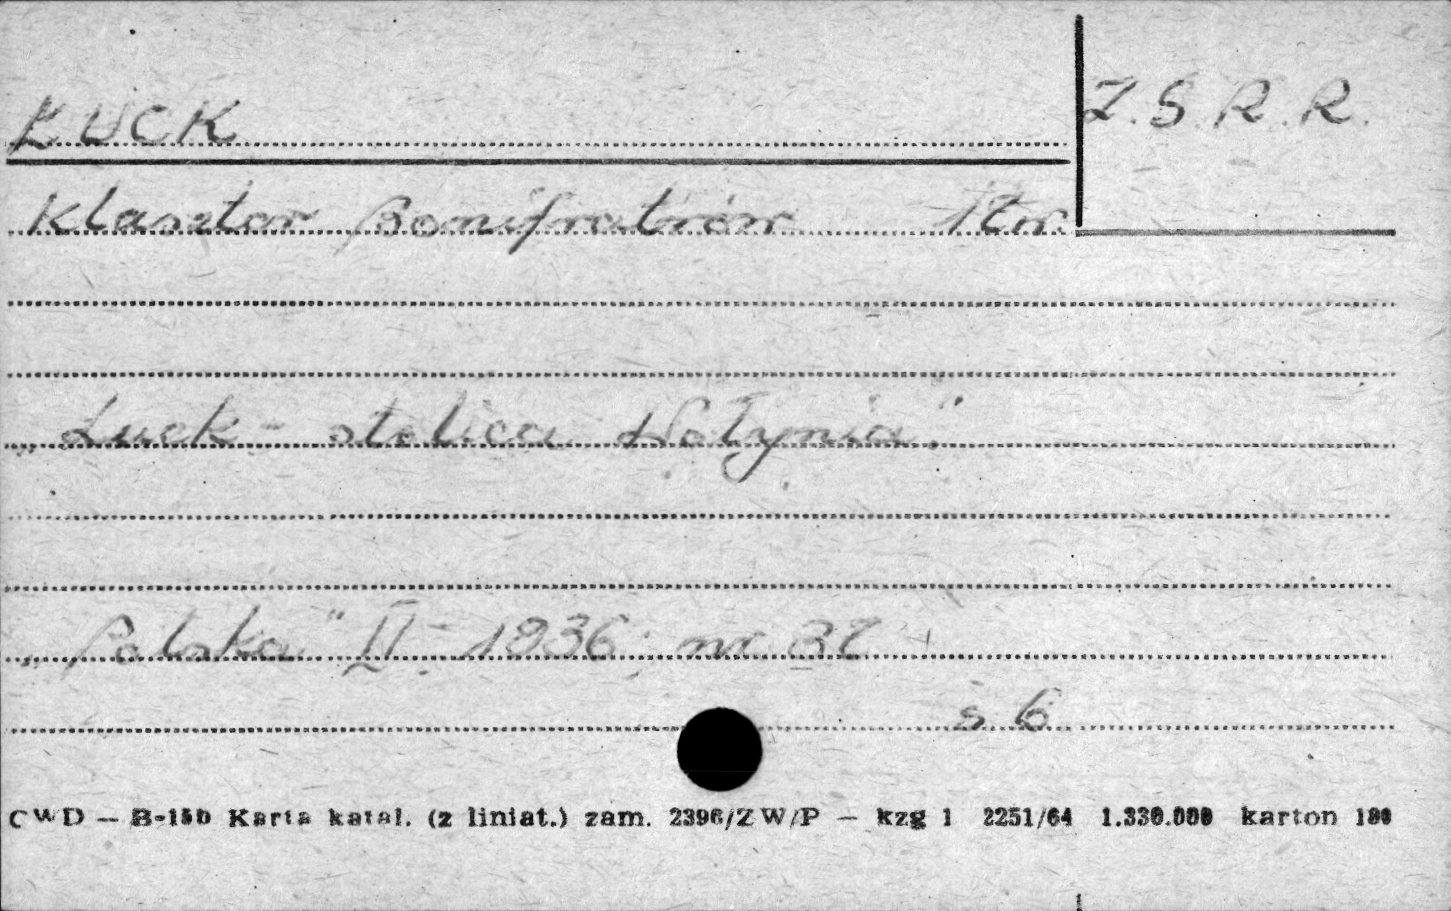 ŁUCK
Z.S.R.R.
Klasztor Bonifratrów 1 tw.
„Łuck - stolica Wołynia"
„Polska" II - 1936, nr 37
s. 6
CWD — B-15b Karta katal. (z liniat.) zam. 2396/ZW/P — kzg 1 2251/64 1.330.000 karton 180